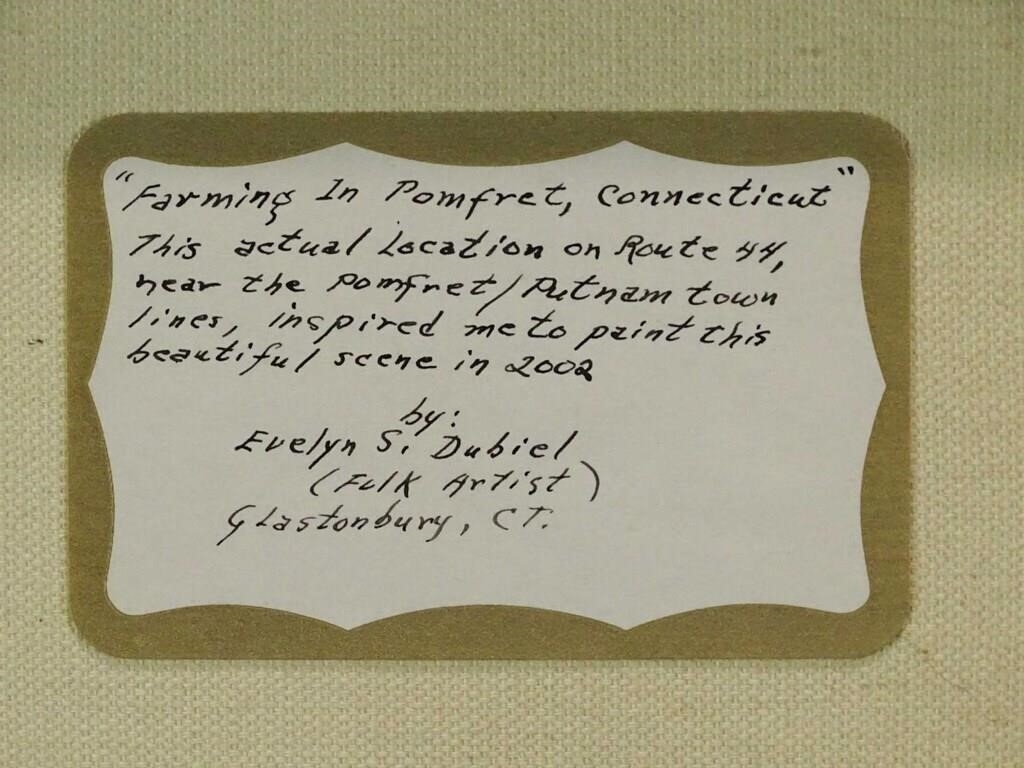 "Farming In Pomfret, Connecticut"
This actual Location on Route 44,
near the Pomfret/Putnam town
lines, inspired me to paint this
beautiful scene in 2002
by:
Evelyn S. Dubiel
(Folk Artist)
Glastonbury, CT.